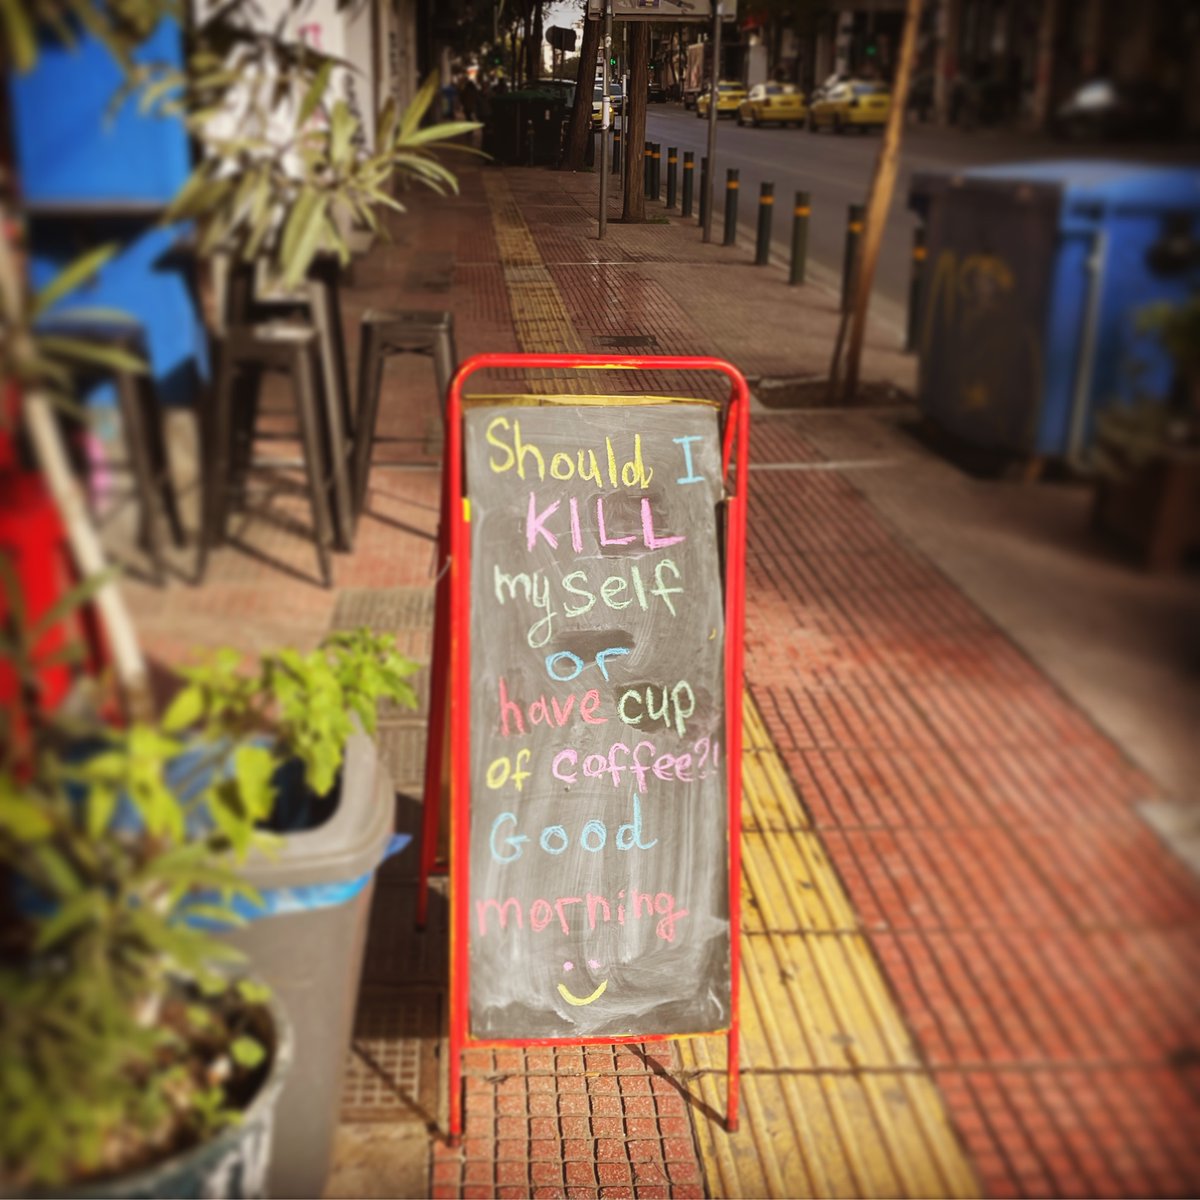 Should I
KILL
myself
or
have cup
of coffee?!
Good
morning